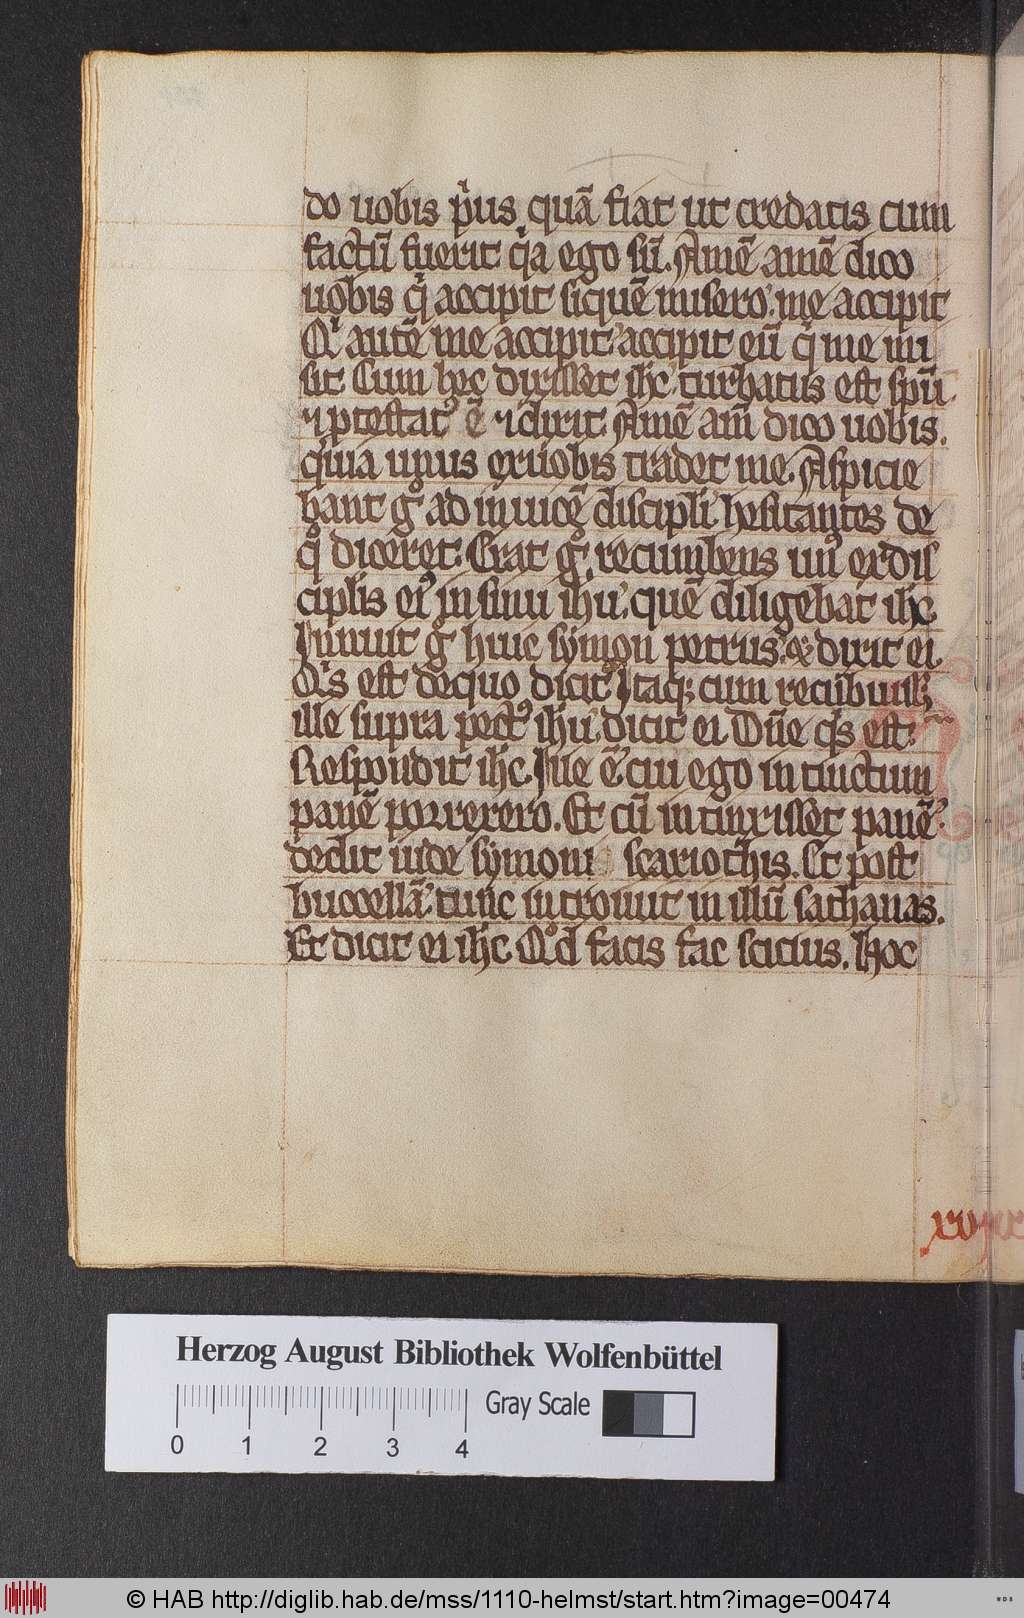 do uobis p͛us quā fiat ut credatis cum
factū fuerit q͛a ego sū. Amē amē dico
uobis q͛ accipit siquē misero. me accipit
Q͛ autē me accipit accipit eū q͛ me mi
sit Cum hec dixisset ih̄c turbatus est sp̄u.
⁊ ptestatꝰ ē ⁊ dixit. Amē am̄ dico uobis.
quia unus ex uobis tradet me. Aspicie
bant g̊ ad inuicē discipli hesitantes de
q̊ diceret. Erat g̊ recumbens unꝰ ex dis
ciplis eiꝰ in sinu ih̄u. quē diligebat ih̄c.
Innuit g̊ huic symon petrus. & dixit ei
Q͛s est dequo dicit Itaqꝫ cum recubuiss͛
ille supra pectꝰ ih̄u dicit ei Dn̄e q͛s est.
Respondit ih̄c. Ille ē cui ego intinctum
panē porrexero. Et cū intinxisset panē.
dedit iude symoni scariothis. Et post
buccellā tunc introiuit in illū sathanas.
Et dicit ei ih̄c. Qd̊ facis fac scicius. Hoc
Herzog August Bibliothek Wolfenbüttel
Gray Scale
0 1 2 3 4
© HAB http://diglib.hab.de/mss/1110-helmst/start.htm?image=00474